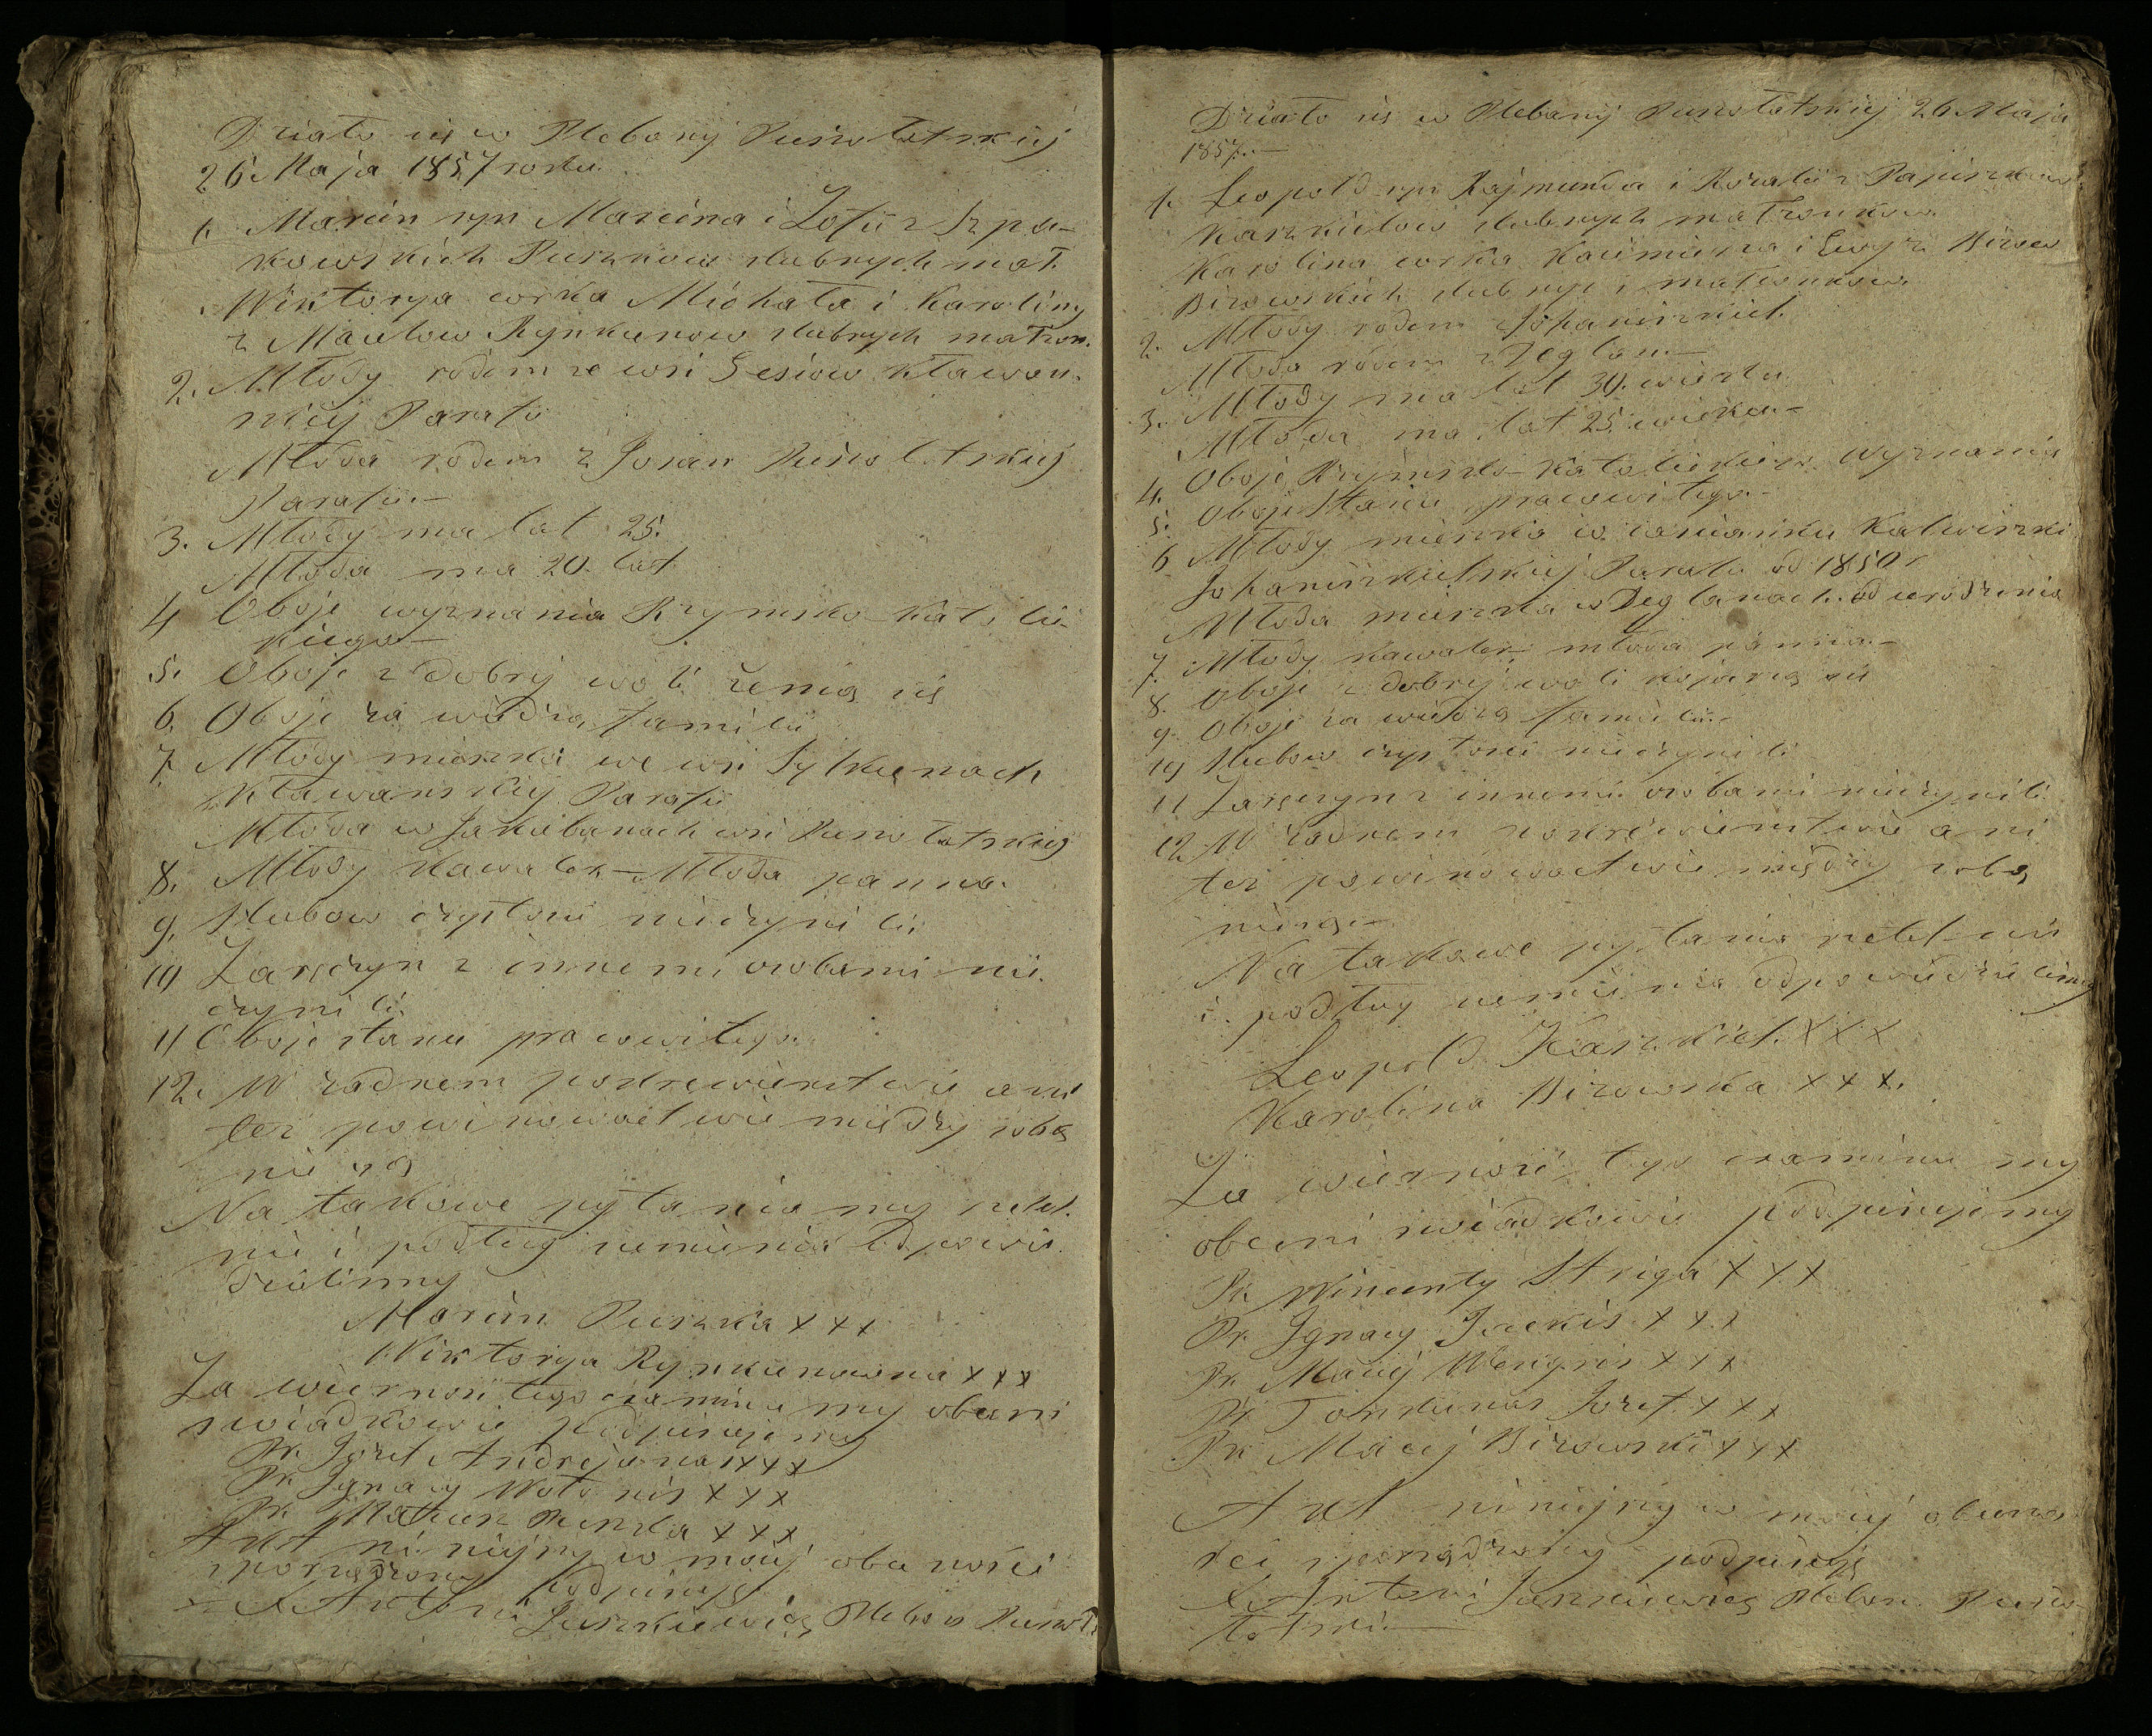 Działo się w Plebanÿ Puszołatskiej
26 Maja 1857 roku.
1. Marcin syn Marcina i Zofii z Szpa-
kowskich Puszków ślubnych mał.
Wiktorya córka Michała i Karoliny
z Maculow Rynkunow slubnych małżon.
2. Młody rodem ze wsi Kławan-
skiej Parafii
Młoda rodem z Puszołatskiej
Parafii.—
3. Młody ma lat 25.
Młoda ma 20 lat
4 Oboje wyznania Rzymsko-Katolic-
kiego—
5. Oboje z dobrej woli żenią się
6. Oboje za wiedzą familii
7. Młody mieszka we wsi
Kławanskiej Parafii
Młoda w Jakubanach wsi Puszołatskiej
8. Młody kawaler—Młoda panna.
9. Slubow czystości nieczynili.
10 Zaręczyn z innemi osobami nie
czynili
11 Oboje stanu pracowitego.
12. W żadnem pokrewienstwie ani
też powinowactwie między sobą
nie są
Na takowe pytania my rzetel.
nie i podług sumienia odpowie.
dzielismy
Marcin Puszka x x x
Wiktorya Rynkunowna x x x
Za wierność tego examinu my obecni
swiadkowie podpisujemy
Pr. Jozef Andrejunas x x x
Pr. Ignacy x x x
Pr. Mateusz Puszka x x x
Akt niniejszy w mojej obecności
sporządzony Podpisuję
X Antoni Juszkiewicz Pleban Puszoł.
Działo się w Plebanÿ Puszołatskiej 26 Maja
1857.—
1. Leopold syn Rajmunda i Rozalii z
Karzkielow slubnych małżonkow
Karolina córka Kazimierza i Ewy z
Birowskich slubnych małżonkow.
2. Młody rodem z Johaniszkiel.
Młoda rodem z Deglan.—
3. Młody ma lat 30. wieku
Młoda ma lat 25. wieku.—
4. Oboje Rzymsko-Katolickiego wyznania
5. Oboje Stanu pracowitego.—
6 Młody mieszka w zascianku
Johaniszkielskiej Parafii od 1850 r
Młoda mieszka w Deglanach od urodzenia
7. Młody kawaler młoda panna.—
8. Oboje z dobrej woli kojarzą się
9. Oboje za wiedzą familii.—
10 Slubow czystości nieczynili
11 Zaręczyn z innemi osobami nieczynili.
12 W żadnem pokrewienstwie ani
też powinowactwie między sobą
niesą.—
Na takowe pytania rzetelnie
i podług sumienia odpowiedzielismy
Leopold Karzkiel. X X X
Karolina Birowska x x x.
Za wierność tego examinu my
obecni swiadkowie podpisujemy
Pr. Wincenty Striga x x x
Pr. Ignacy x x x
Pr. Maciej Wengris x x x
Pr. Jozef. x x x
Pr. Maciej Birowski x x x
Akt niniejszy w mojej obecno
sci sporządzony podpisuję
X Antoni Juszkiewicz Pleban Puszo-
łatski.—